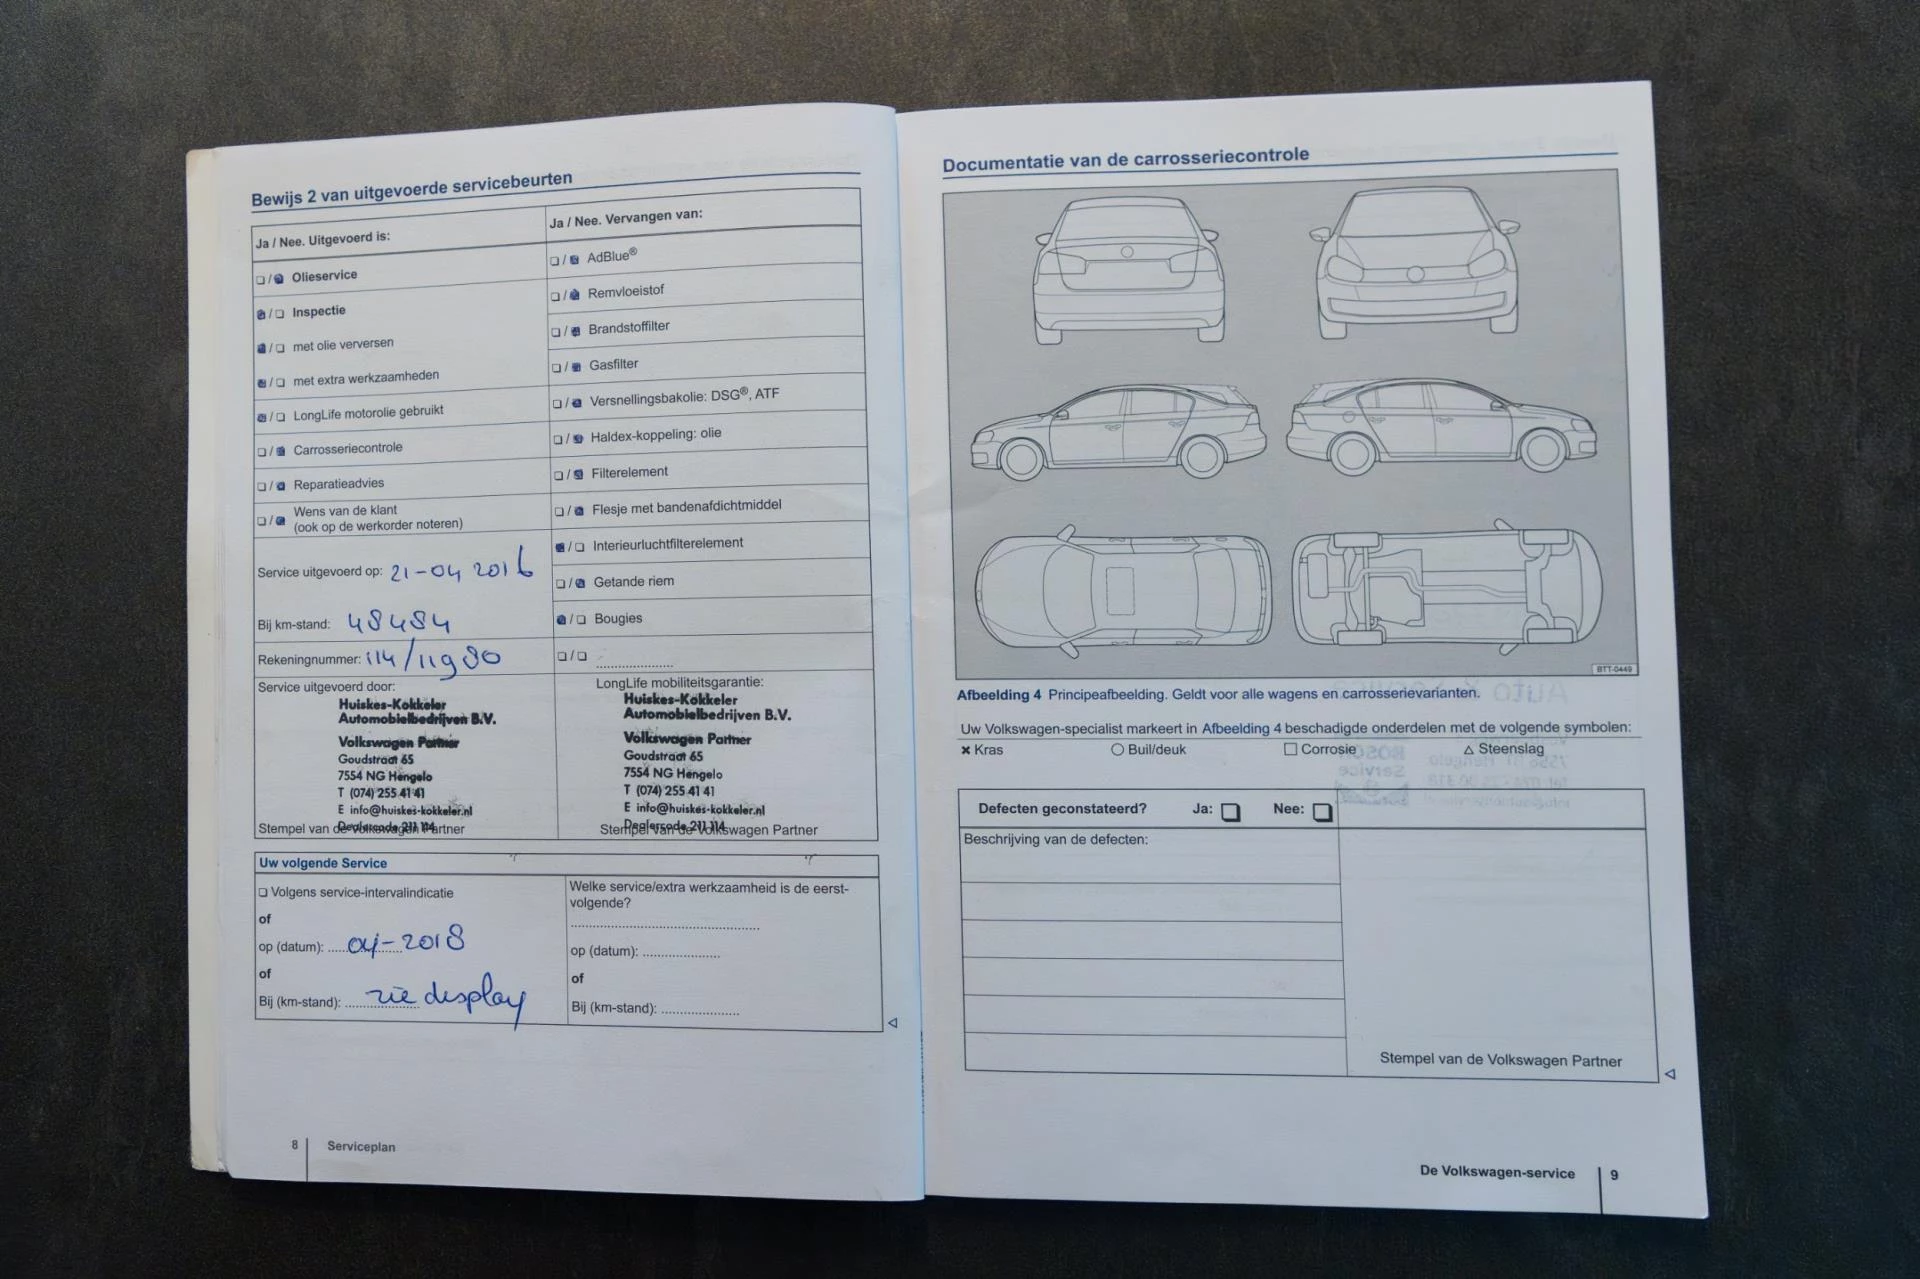 Bewijs 2 van uitgevoerde servicebeurten
Ja / Nee. Uitgevoerd is:
Olieservice
Inspectie
met olie verversen
met extra werkzaamheden
LongLife motorolie gebruikt
Carrosseriecontrole
Reparatieadvies
Wens van de klant
(ook op de werkorder noteren)
Service uitgevoerd op: 21-04 2016
Bij km-stand: 48484
Rekeningnummer: 114/11980
Ja / Nee. Vervangen van:
AdBlue®
Remvloeistof
Brandstoffilter
Gasfilter
Versnellingsbakolie: DSG®, ATF
Haldex-koppeling: olie
Filterelement
Flesje met bandenafdichtmiddel
Interieurluchtfilterelement
Getande riem
Bougies
Service uitgevoerd door:
Huiskes-Kokkeler
Automobielbedrijven B.V.
Volkswagen Partner
Goudstraat 65
7554 NG Hengelo
T (074) 255 41 41
E info@huiskes-kokkeler.nl
Dealercode 211 114
Stempel van de Volkswagen Partner
LongLife mobiliteitsgarantie:
Huiskes-Kokkeler
Automobielbedrijven B.V.
Volkswagen Partner
Goudstraat 65
7554 NG Hengelo
T (074) 255 41 41
E info@huiskes-kokkeler.nl
Dealercode 211 114
Stempel van de Volkswagen Partner
Uw volgende Service
Volgens service-intervalindicatie
of
op (datum): 04-2018
of
Bij (km-stand): zie display
Welke service/extra werkzaamheid is de eerst-
volgende?
op (datum):
of
Bij (km-stand):
8 Serviceplan
Documentatie van de carrosseriecontrole
BTT-0449
Afbeelding 4 Principeafbeelding. Geldt voor alle wagens en carrosserievarianten.
Uw Volkswagen-specialist markeert in Afbeelding 4 beschadigde onderdelen met de volgende symbolen:
Kras Buil/deuk Corrosie Steenslag
Defecten geconstateerd? Ja: Nee:
Beschrijving van de defecten:
Stempel van de Volkswagen Partner
De Volkswagen-service 9